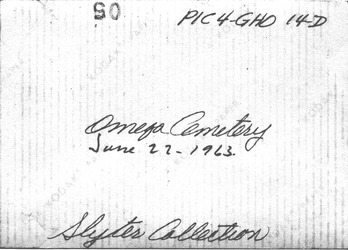 50 PIC4-GHO 14-D
Omega Cemetery
June 22-1963.
Slyter Collection